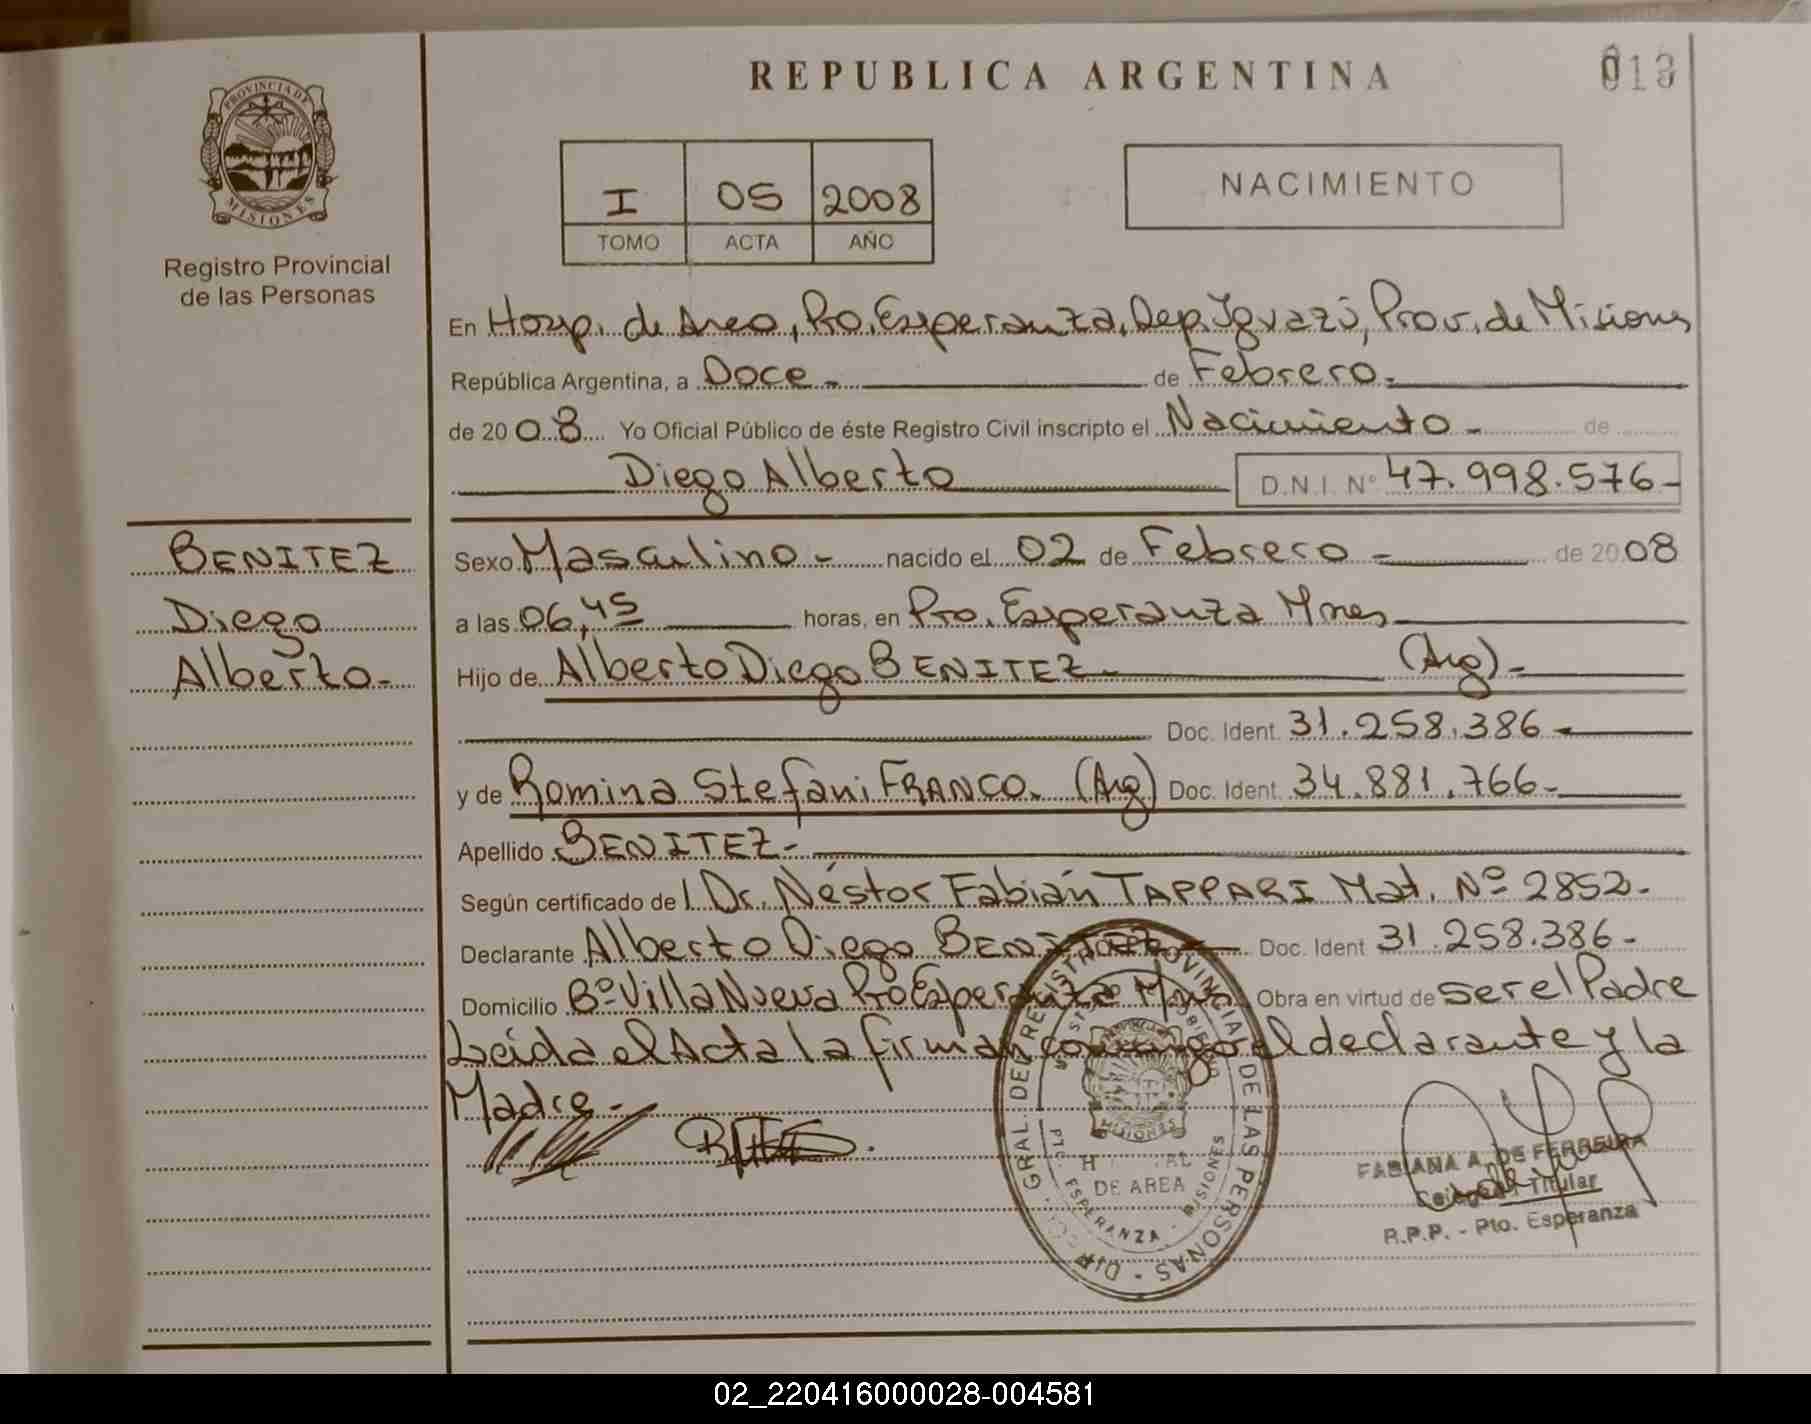 REPUBLICA ARGENTINA
013
PROVINCIA DE
MISIONES
Registro Provincial
de las Personas
I 05 2008
TOMO ACTA AÑO
NACIMIENTO
En Hosp. de Area, Pto. Esperanza, Dep. Iguazú, Prov. de Misiones
República Argentina, a Doce - de Febrero -
de 2008 Yo Oficial Público de éste Registro Civil inscripto el Nacimiento - de
Diego Alberto D.N.I. N° 47.998.576-
BENITEZ
Diego
Alberto-
Sexo Masculino - nacido el 02 de Febrero - de 2008
a las 06,45 horas, en Pto. Esperanza Mnes
Hijo de Alberto Diego BENITEZ- (Arg)-
Doc. Ident. 31.258.386-
y de Romina Stefani FRANCO. (Arg) Doc. Ident. 34.881.766-
Apellido BENITEZ-
Según certificado de l Dr. Néstor Fabián TAPPARI Mat. Nº 2852-
Declarante Alberto Diego BENITEZ- Doc. Ident 31.258.386-
Domicilio Bº Villa Nueva Pto Esperanza Mnes. Obra en virtud de ser el Padre
Leída el Acta la firman conmigo el declarante y la
Madre-
GRAL. DEL REGISTRO PROVINCIAL DE LAS PERSONAS - DIR
MISIONES
DE AREA
ESPERANZA - MISIONES
FABIANA A. DE FERREIRA
Titular
R.P.P. - Pto. Esperanza
02_220416000028-004581